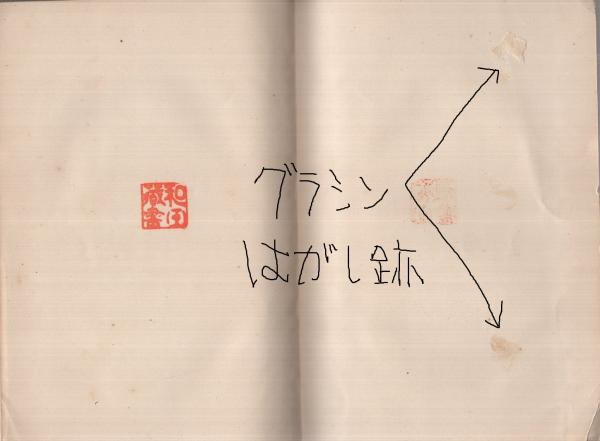 グラシン
はがし跡
和田
蔵書